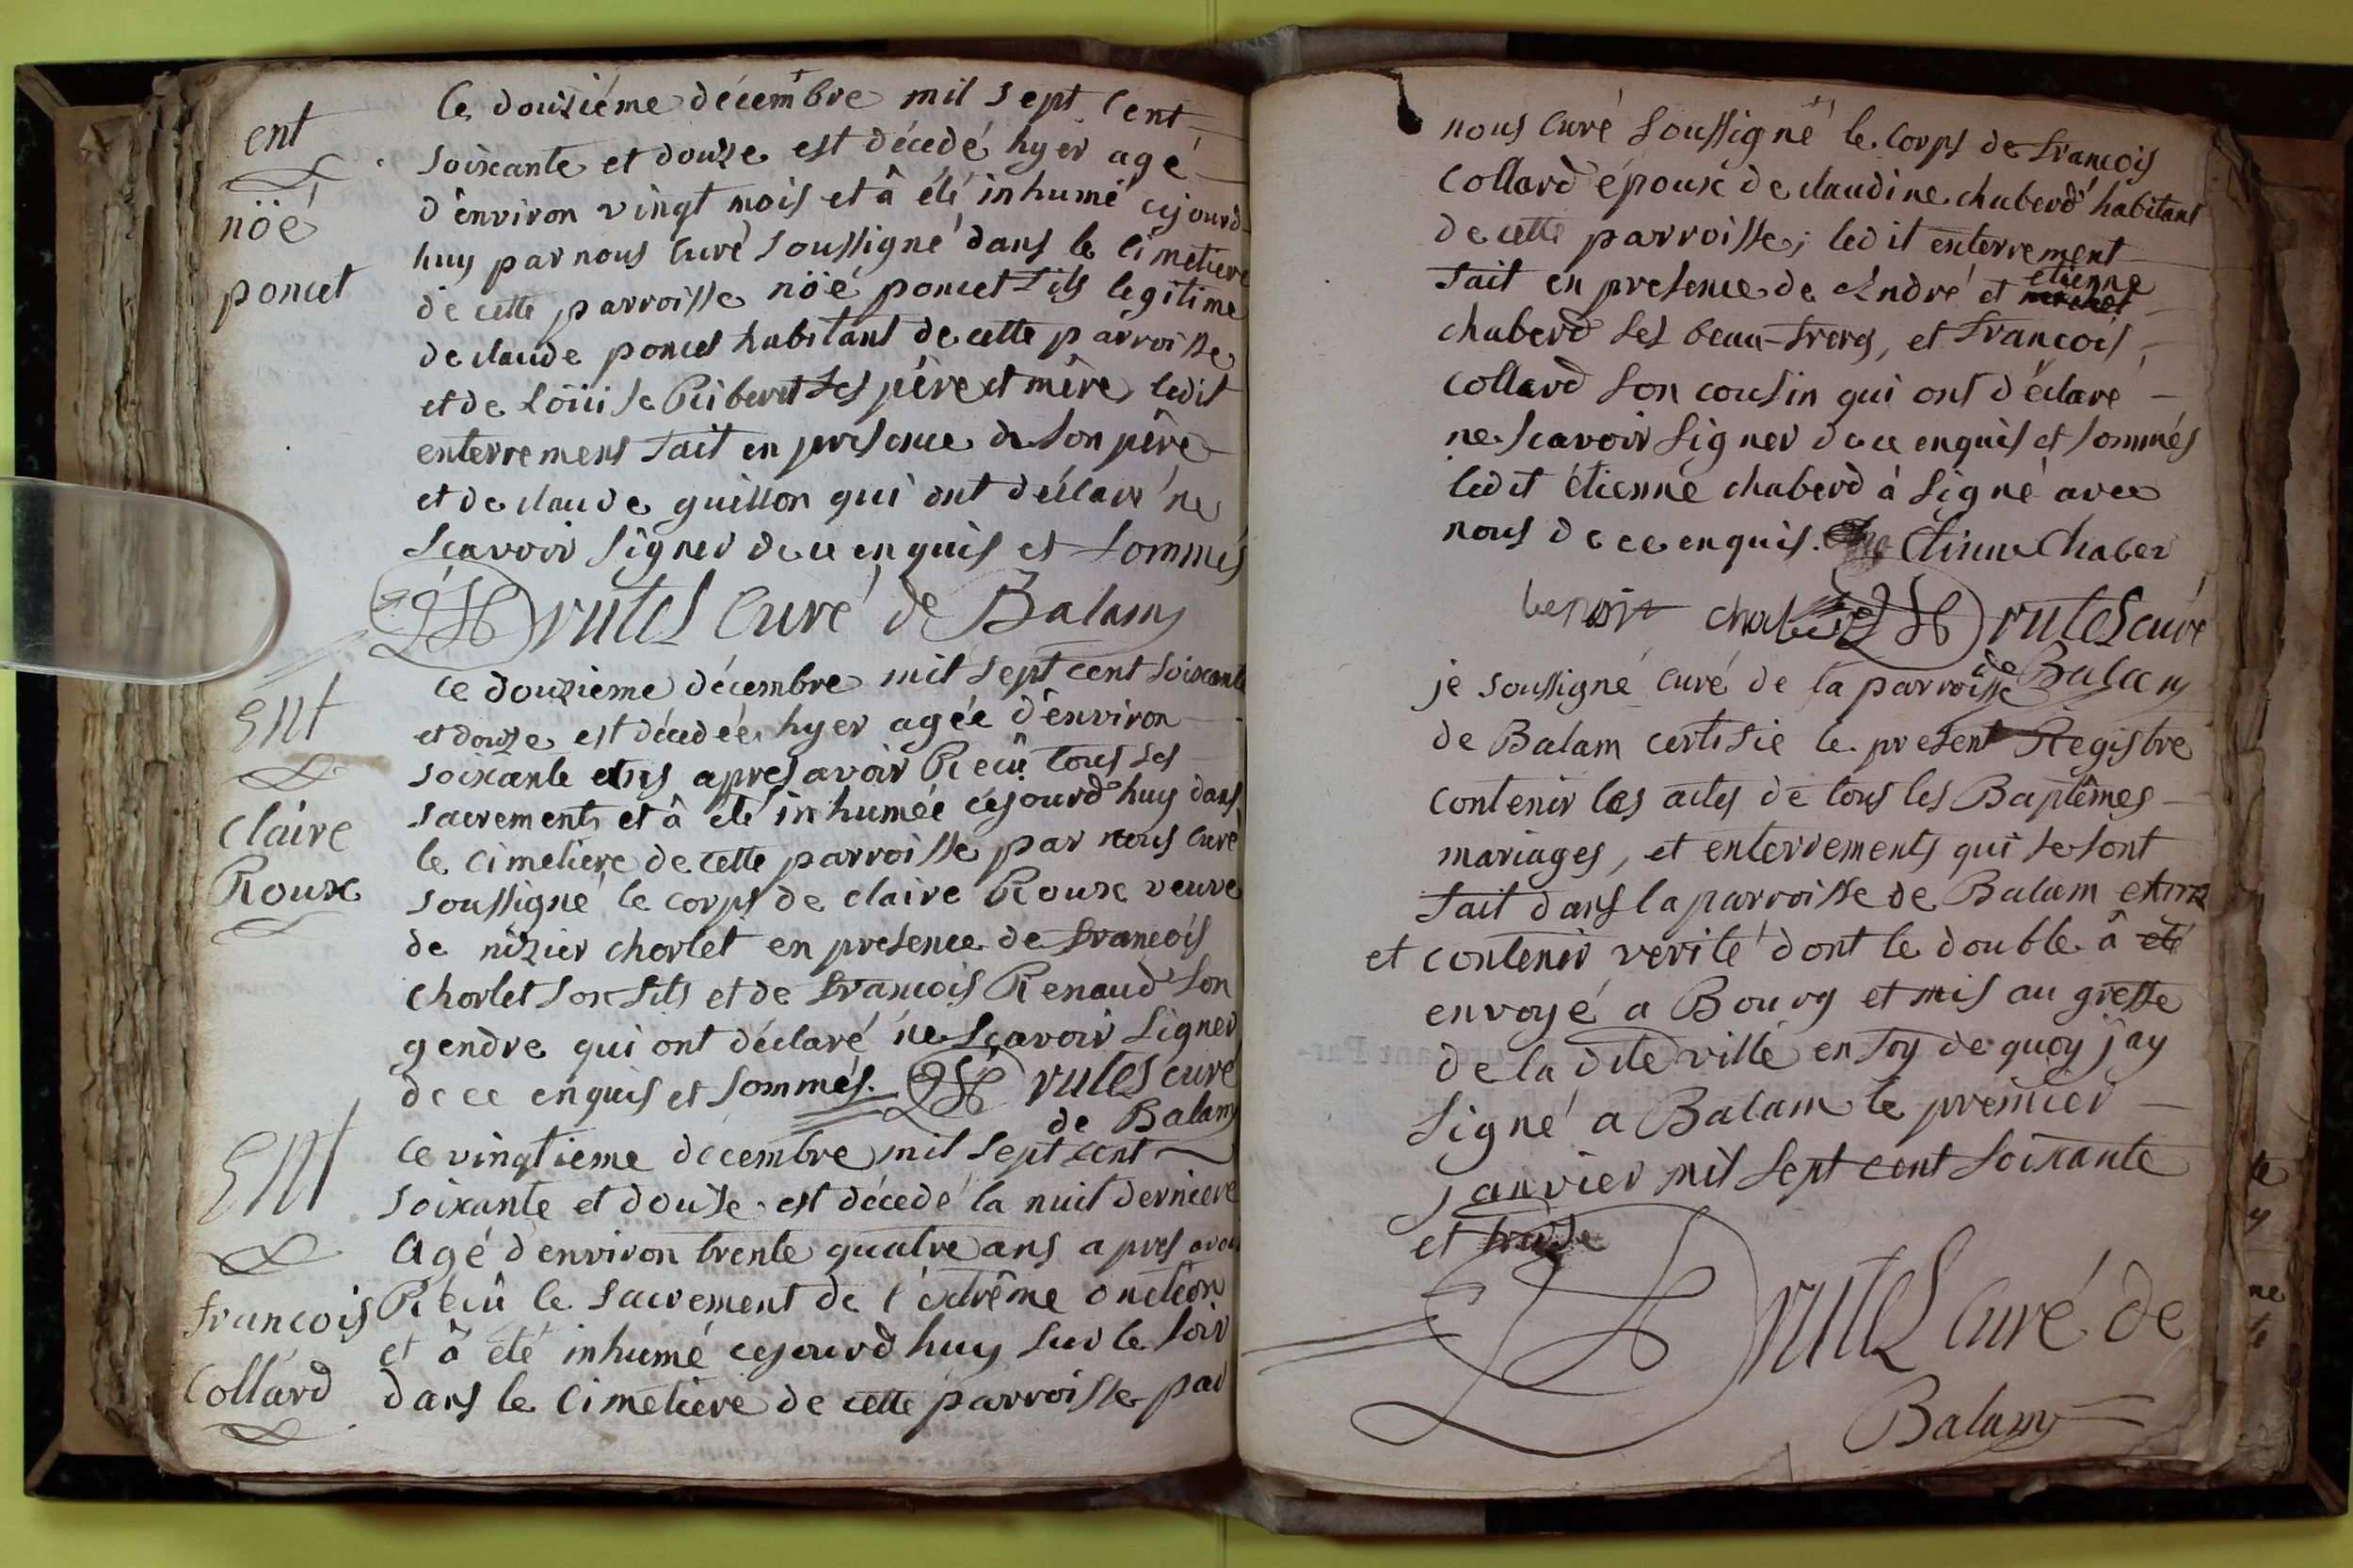 ent
nöé
poncet
Ce douziéme décembre mil sept cent
soixante et douze est décedé hyer agé
d'énviron vingt mois et â été inhumé cejourd-
huy par nous Curé soussigné dans le Cimetiere
de cette parroisse nöé poncet fils legitime
de claude poncet habitant de cette parroisse
et de Löüise Riberet ses pére et mére, ledit
enterrement fait en presence de son pére
et de claude guillon qui ont déclaré ne
scavoir signer de ce enquis et sommés
Drutel Curé de Balam
Ent
Claire
Roux
Ce douzieme décembre mil sept cent soixante
et douze est décedée hyer agée d'énviron
soixante ans apres avoir Reçû tous ses
sacrements et â été inhumée cejourd'huy dans
le Cimetiere de cette parroisse par nous curé
soussigné le corps de claire Roux veuve
de nizier chorlet en presence de francois
chorlet son fils et de francois Renaud son
gendre qui ont déclaré ne sçavoir signer
de ce enquis et sommés. Drutel curé
de Balam
Ent
francois
Collard
Ce vingtieme décembre mil sept cent
soixante et douze est décedé la nuit derniere
Agé d'environ trente quatre ans apres avoir
Reçû le sacrement de l'extrême onction
et â été inhumé cejourd'huy sur le soir
dans le Cimetiere de cette parroisse par
nous Curé soussigné le Corps de francois
Collard époux de claudine chaberd habitant
de cette parroisse, ledit enterrement
fait en presence de André et etienne
chaberd ses beau-freres, et francois
collard son cousin qui ont déclaré
ne scavoir signer de ce enquis et sommés
ledit étienne chaberd à signé avec
nous de ce enquis. Etinne Chaber
benoit chaber Drutel curé
de Balam
je soussigné curé de la parroisse
de Balam certifie le present Registre
contenir les actes de tous les Baptêmes
mariages, et enterrements qui se sont
fait dans la parroisse de Balam
et contenir verité dont le double â été
envoyé a Bourg et mis au greffe
de la dite ville en foy de quoy j'ay
signé a Balam le premier
janvier mil sept cent soixante
et treize
Drutel Curé de
Balam